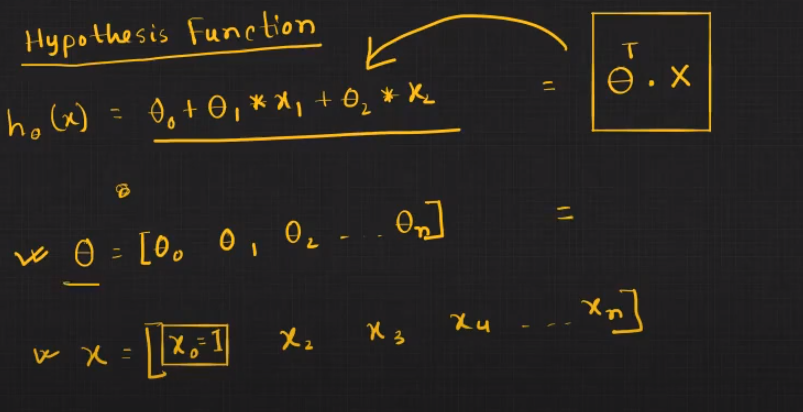 Hypothesis Function
hθ(x) = θ₀ + θ₁ * x₁ + θ₂ * x₂ = θᵀ . X
θ = [θ₀ θ₁ θ₂ - . . . θn] =
x = [x₀=1 x₂ x₃ x₄ . . . - - - xn]